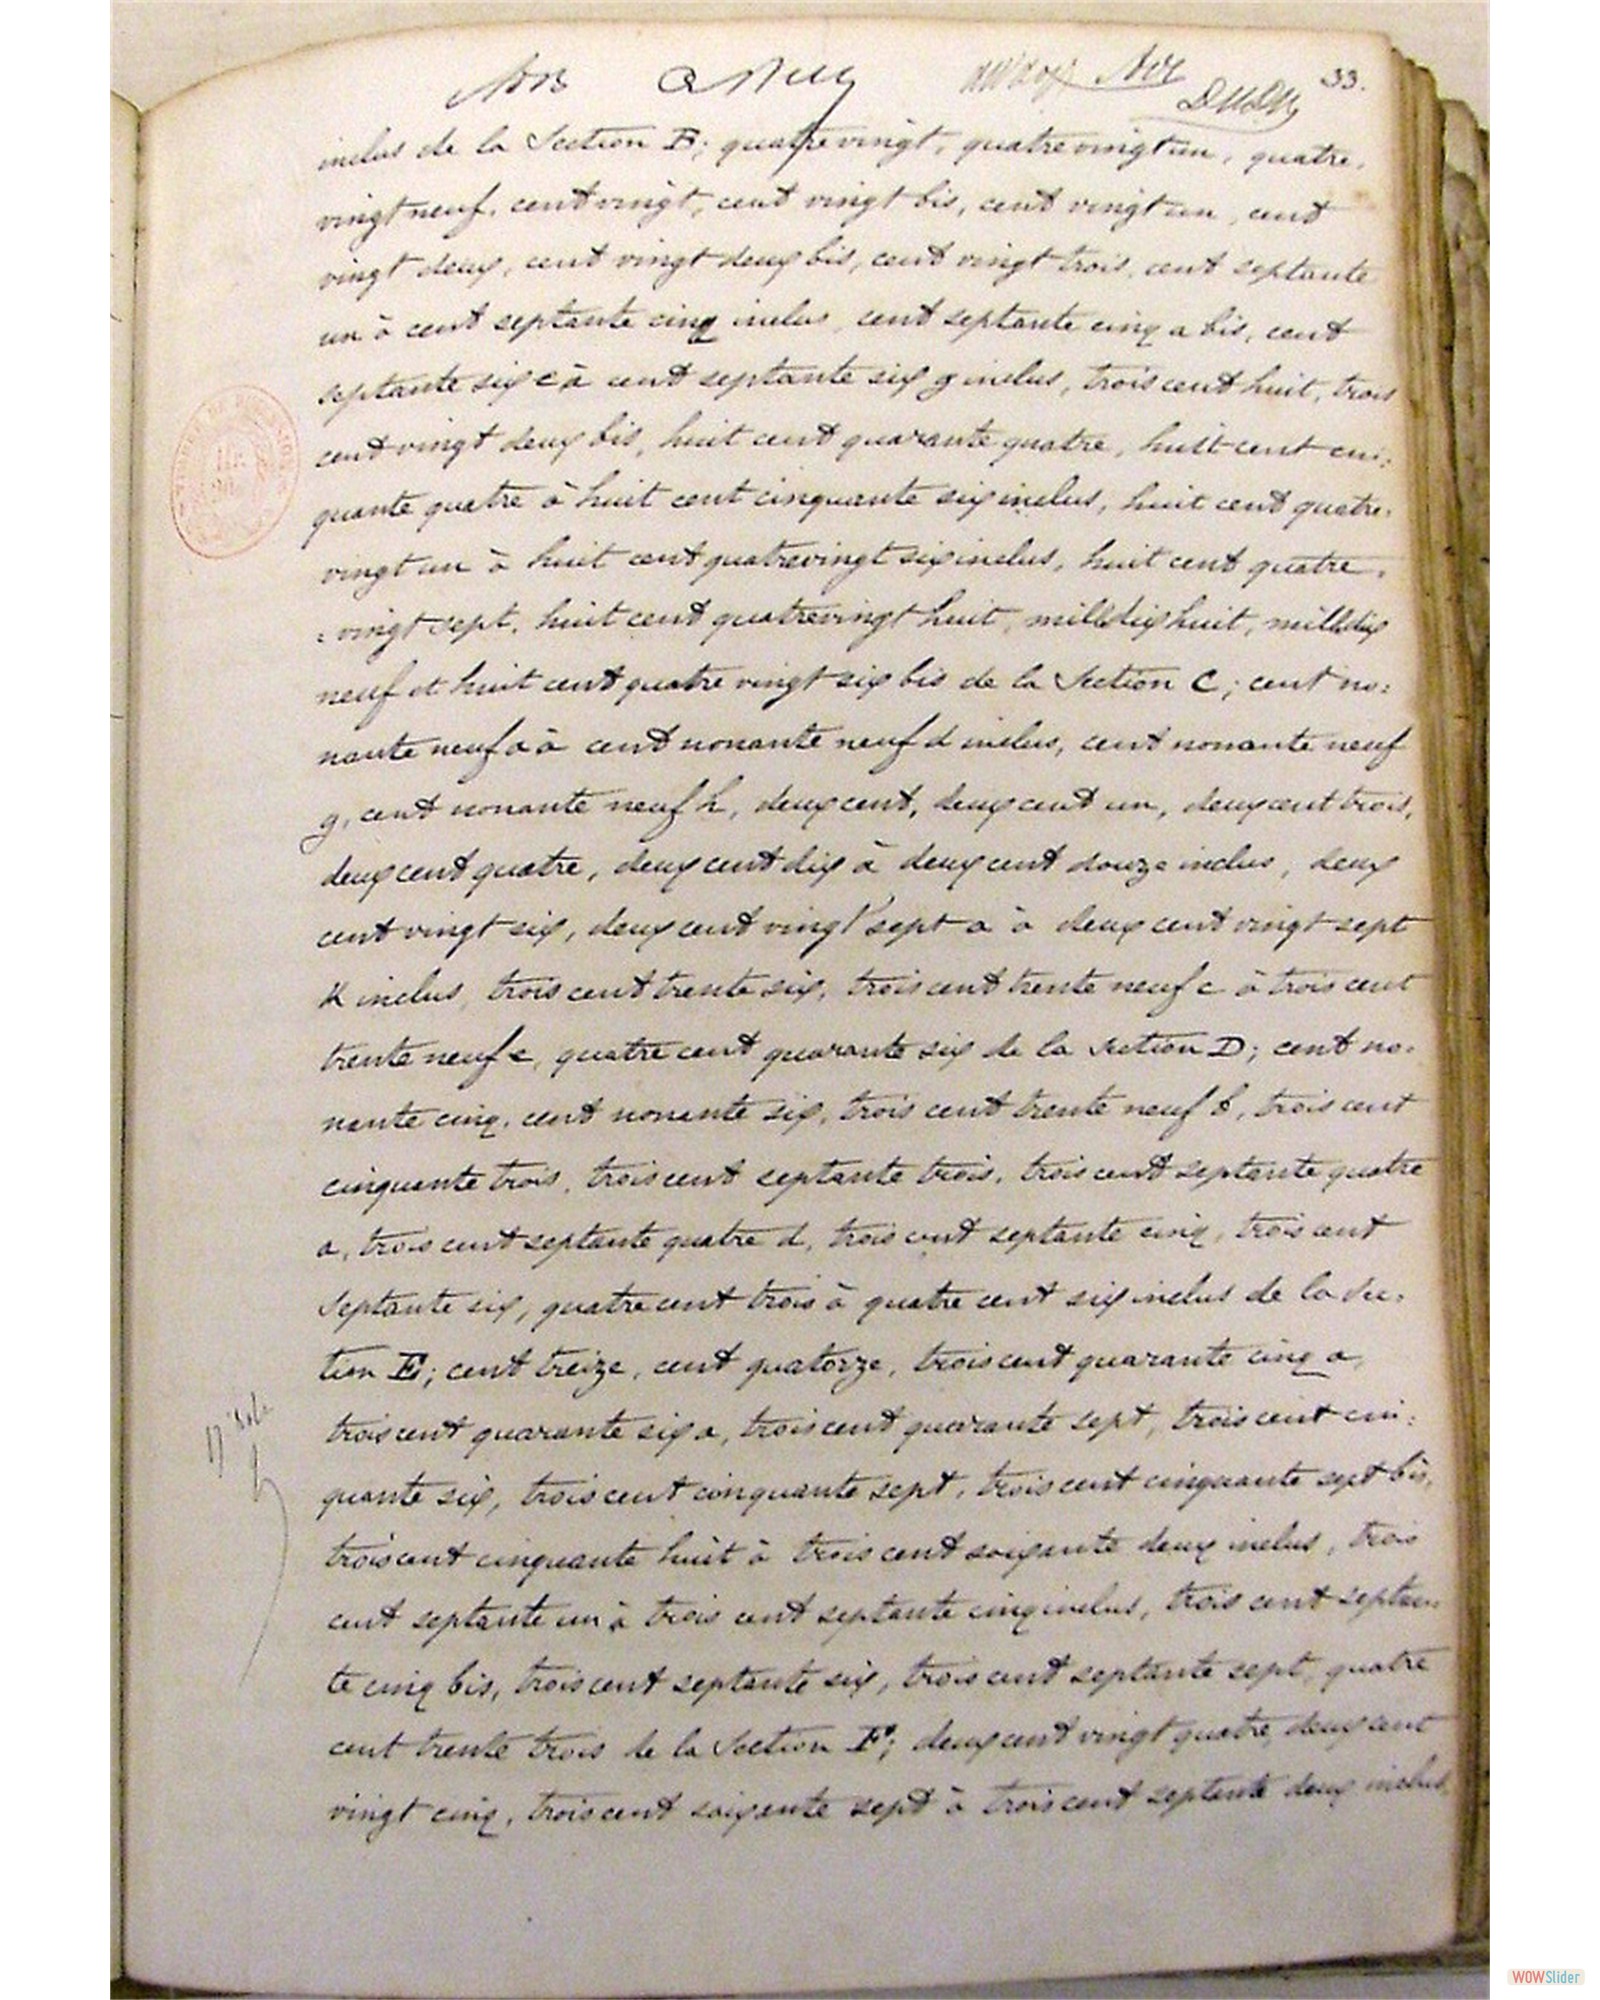 33.
inclus de la Section B; quatre vingt, quatre vingt un, quatre.
vingt neuf, cent vingt, cent vingt bis, cent vingt un, cent
vingt deux, cent vingt deux bis, cent vingt trois, cent septante
un à cent septante cinq inclus, cent septante cinq a bis, cent
septante six c à cent septante six g inclus, trois cent huit, trois
cent vingt deux bis, huit cent quarante quatre, huit cent cin:
quante quatre à huit cent cinquante six inclus, huit cent quatre.
vingt un à huit cent quatre vingt six inclus, huit cent quatre.
: vingt sept, huit cent quatre vingt huit, mill dix huit, mill dix
neuf et huit cent quatre vingt six bis de la Section C; cent no:
nante neuf a à cent nonante neuf d inclus, cent nonante neuf
g, cent nonante neuf h, deux cent, deux cent un, deux cent trois,
deux cent quatre, deux cent dix à deux cent douze inclus, deux
cent vingt six, deux cent vingt sept a à deux cent vingt sept
K inclus, trois cent trente six, trois cent trente neuf c à trois cent
trente neuf e, quatre cent quarante six de la Section D; cent no.
nante cinq, cent nonante six, trois cent trente neuf b, trois cent
cinquante trois, trois cent septante trois, trois cent septante quatre
a, trois cent septante quatre d, trois cent septante cinq, trois cent
septante six, quatre cent trois à quatre cent six inclus de la Sec.
tion E; cent treize, cent quatorze, trois cent quarante cinq a,
trois cent quarante six a, trois cent quarante sept, trois cent cin:
quante six, trois cent cinquante sept, trois cent cinquante sept bis,
trois cent cinquante huit à trois cent soixante deux inclus, trois
cent septante un à trois cent septante cinq inclus, trois cent septan:
te cinq bis, trois cent septante six, trois cent septante sept, quatre
cent trente trois de la Section F; deux cent vingt quatre, deux cent
vingt cinq, trois cent soixante sept à trois cent septante deux inclus,
WOWSlider